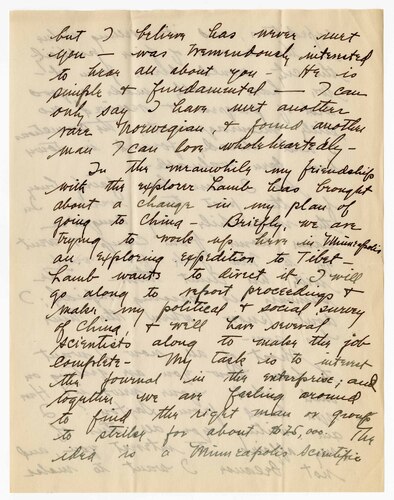 but I believe has never met
you — was tremendously interested
to hear all about you — He is
simple & fundamental — I can
only say I have met another
rare Norwegian, & found another
man I can love wholeheartedly —
In the meanwhile my friendship
with the explorer Lamb has brought
about a change in my plan of
going to China — Briefly, we are
trying to work up here in Minneapolis
an exploring expedition to Tibet —
Lamb wants to direct it, I will
go along to report proceedings &
make my political & social survey
of China, & will have several
scientists along to make the job
complete — My task is to interest
the Journal in the enterprise; and
together we are feeling around
to find the right man or group
to strike for about $75,000. The
idea is a Minneapolis Scientific